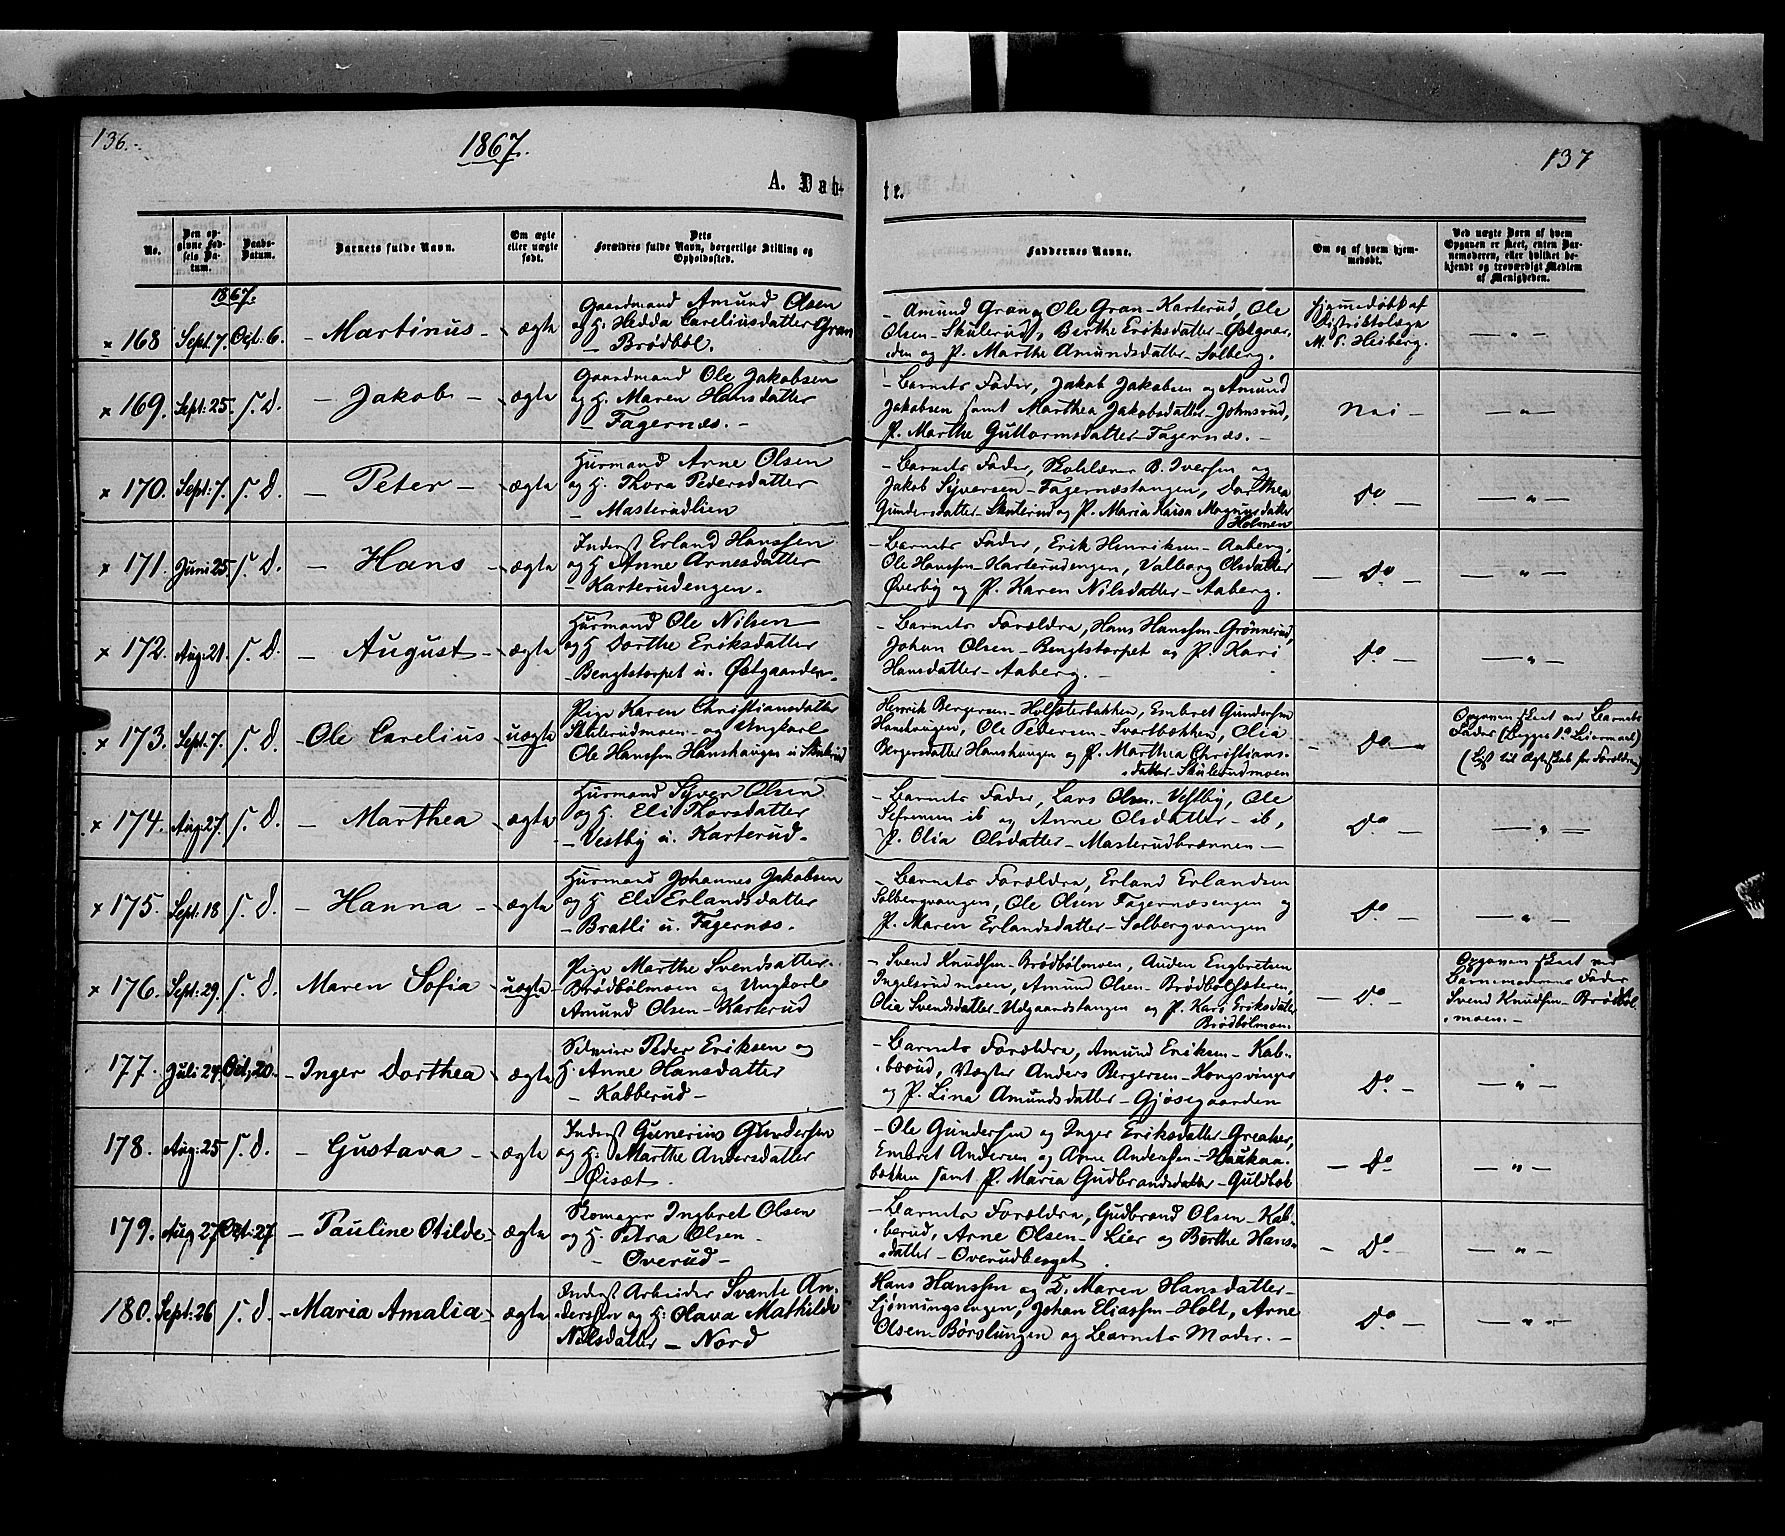 136.
1867.
137
A. Døb-
te.
No.
Den op-
givne Fød-
sels Da-
tum.
Daabs-
Datum.
Barnets fulde Navn.
Om ægte
eller uægte
født.
Dets
Forældres fulde Navn, borgerlige Stilling og
Opholdssted.
Faddernes Navne.
Om og af hvem hjem-
medøbt.
Ved uægte Børn af hvem
Opgaven er skeet, enten Bar-
nemoderen, eller hvilket be-
kjendt og troværdigt Medlem
af Menigheden.
1867.
x 168 Sept. 7. Oct. 6. Martinus - ægte
Gaardmand Amund Olsen
og H. Hedda Careliusdatter Gran
- Brødbøl.
- Amund Gran og Ole Gran - Karterud, Ole
Olsen - Skulerud, Berthe Eriksdatter - Østgaar-
den og P. Marthe Amundsdatter - Solberg.
Hjemmedøbt af
Distriktslæge
M. P. Heiberg.
- " -
x 169. Sept. 25. s. D. - Jakob - ægte
Gaardmand Ole Jakobsen
og H. Maren Hansdatter
- Fagernæs. -
- Barnets Fader, Jakob Jakobsen og Amund
Jakobsen samt Marthea Jakobsdatter - Johnsrud,
P. Marthe Guttormsdatter - Fagernæs. -
Nei -
- " -
x 170. Sept. 7. s. D. - Peter - ægte
Husmand Arne Olsen
og H. Thora Pedersdatter
- Masterudlien
- Barnets Fader, Skolelærer B. Iversen og
Jakob Syversen - Fagernæstangen, Dorthea
Gundersdatter - Skulerud og P. Maria Kaisa Magnusdatter
Holmen
Do -
- " -
x 171. Juni 25. s. D. - Hans - ægte
Inderst Erland Hanssen
og H. Anne Arnesdatter
- Karterudengen.
- Barnets Fader, Erik Henriksen - Aaberg,
Ole Hanssen - Karterudengen, Valborg Olsdatter
Øverby og P. Karen Nilsdatter - Aaberg.
- Do -
- " -
x 172. Aug. 21. s. D. - August - ægte
Husmand Ole Nilsen
og H. Dorthe Eriksdatter
- Bengtstorpet u. Østgaarden.
- Barnets Forældre, Hans Hanssen - Grønnerud,
Johan Olsen - Bengtstorpet og P. Kari
Hansdatter - Aaberg. -
Do -
- " -
x 173. Sept. 7. s. D. - Ole Carelius - uægte
Pige Karen Christiansdatter
Skulerudmoen - og Ungkarl
Ole Hanssen Hanshaugen u. Skulerud
Henrik Bergersen - Holsæterbakken, Embret Gundersen
Hanshaugen, Ole Pedersen - Svartbækken, Olia
Bergersdatter Hanshaugen og P. Marthea Christians-
datter - Skulerudmoen
- Do -
Opgaven skeet ved Barnets
Fader (Begges 1e Leiermaal)
(Lyst til Ægteskab for Forældrene)
x 174. Aug. 27. s. D. - Marthea - ægte
Husmand Syver Olsen
og H. Eli Thorsdatter
- Vestby u. Karterud -
- Barnets Fader, Lars Olsen - Vestby, Ole
ib og Anne Olsdatter - ib,
P. Olia Olsdatter - Masterudbrænnen -
Do -
- " -
x 175. Sept. 18 s. D. - Hanna - ægte
Husmand Johannes Jakobsen
og H. Eli Erlandsdatter
- Bratli u. Fagernæs.
- Barnets Forældre, Erland Erlandsen
Solbergvangen, Ole Olsen Fagernæsengen og
P. Maren Erlandsdatter - Solbergvangen
Do -
- " -
x 176. Sept. 29. s. D. Maren Sofia - uægte
Pige Marthe Svendsdatter
Brødbølmoen og Ungkarl
Amund Olsen - Karterud
- Svend Knudsen - Brødbølmoen, Auden Engbretsen
Ingelsrudmoen, Amund Olsen - Brødbølsæteren,
Olia Svendsdatter - Udgaardstangen og P. Kari Eriksdatter
Brødbølmoen.
- Do -
Opgaven skeet ved
Barnemoderens Fader
Svend Knudsen - Brødbøl-
moen. -
177. Juli 24. Oct. 20. - Inger Dorthea - ægte
Selveier Peder Eriksen og
H. Anne Hansdatter
- Kabberud -
- Barnets Forældre, Amund Eriksen - Kab-
berud, Vægter Anders Bergersen - Kongsvinger
og P. Lina Amundsdatter - Gjøsegaarden
Do -
- " -
178. Aug. 25 s. D. - Gustava - ægte
Inderst Gunerius Gundersen
og H. Marthe Andersdatter
- Øiset -
- Ole Gundersen og Inger Eriksdatter - Greaker,
Embret Andersen og Arne Anderssen - Haukaa-
bakken samt P. Maria Gudbrandsdatter - Guldbæk
- Do -
- " -
179. Aug. 27 Oct. 27 - Pauline Otilde - ægte
Skomager Ingbret Olsen
og H. Petra Olsen -
- Overud -
- Barnets Forældre, Gudbrand Olsen - Kab-
berud, Arne Olsen - Lier og Berthe Hans-
datter - Overudberget.
- Do -
- " -
180. Sept. 26 s. D. - Maria Amalia - ægte
Inderst Arbeider Svante An-
derssen og H. Olava Mathilde
Nilsdatter - Nord
Hans Hanssen og H. Maren Hansdatter -
Johan Eliassen - Holt, Arne
Olsen - Børslungen og Barnets Moder. -
Do -
- " -